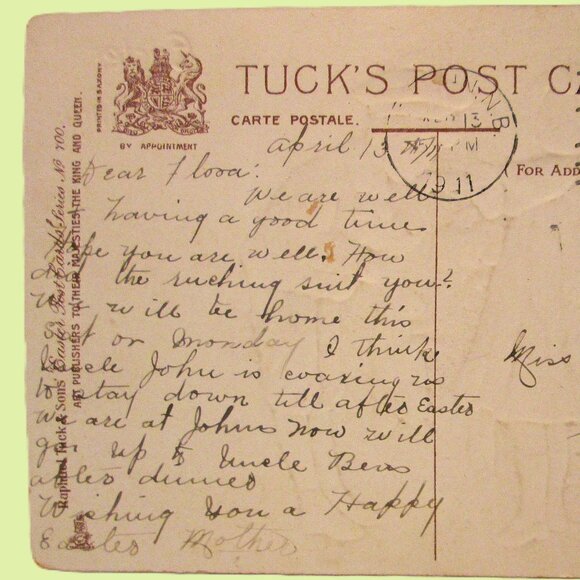 TUCK'S POST CA
CARTE POSTALE.
BY APPOINTMENT
PRINTED IN SAXONY
Raphael Tuck & Sons' Easter Post Cards Series No 700.
ART PUBLISHERS TO THEIR MAJESTIES THE KING AND QUEEN.
N.B
13
PM
1911
( FOR ADD
April 13
Dear Flora:
We are well
having a good time
Hope you are well. How
the ruching suit you?
We will be home this
or Monday I think
Uncle John is coaxing us
to stay down till after Easter
We are at Johns now will
go up to Uncle Bens
after dinner
Wishing you a Happy
Easter Mother
Miss